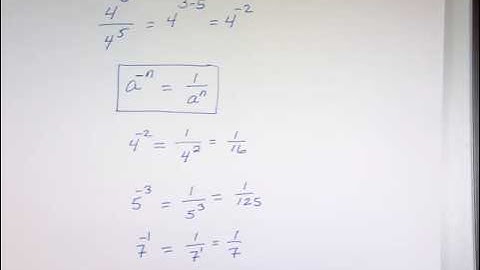 4³/4⁵ = 4³⁻⁵ = 4⁻²
a⁻ⁿ = 1/aⁿ
4⁻² = 1/4² = 1/16
5⁻³ = 1/5³ = 1/125
7⁻¹ = 1/7¹ = 1/7